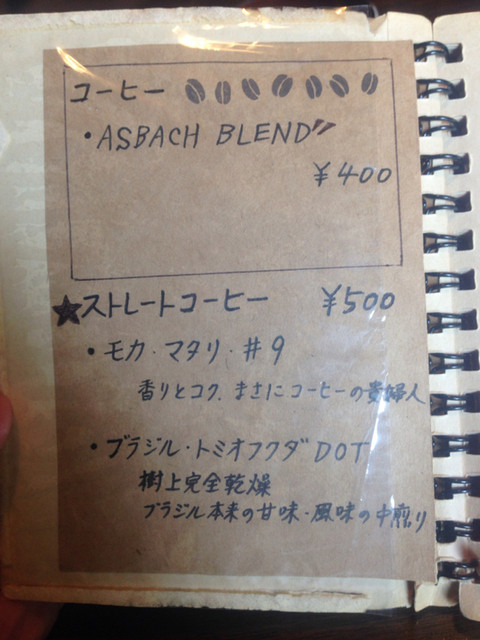 コーヒー
・ASBACH BLEND〃
¥400
★ストレートコーヒー ¥500
・モカ・マタリ・#9
香りとコク、まさにコーヒーの貴婦人
・ブラジル・トミオフクダ DOT
樹上完全乾燥
ブラジル本来の甘味・風味の中煎り